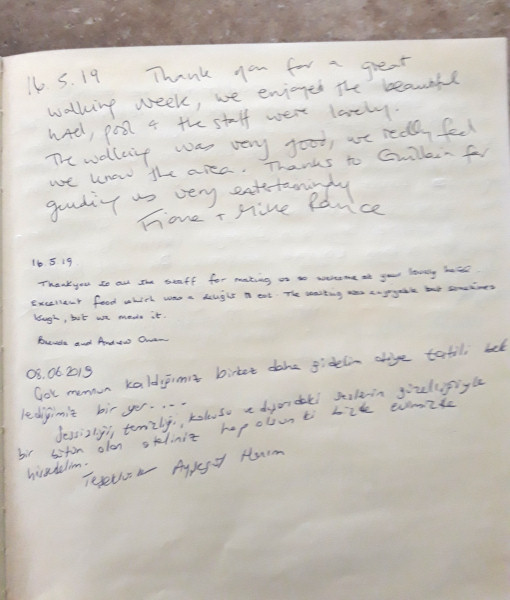 16 5.19 Thank you for a great
walking week, we enjoyed the beautiful
hotel, pool & the staff were lovely.
The walking was very good, we really feel
we know the area. Thanks to for
guiding us very entertainingly
Fiona + Mike
16.5.19
Thankyou to all the staff for making us so welcome at your lovely hotel.
Excellent food which was a delight to eat. The walking was enjoyable but sometimes
tough, but we made it.
Brenda and Andrew Owen
08.06.2019
Çok memnun kaldığımız birkez daha gidelim diye tatili bek
lediğimiz bir yer....
Sessizliği, temizliği, kokusu ve dışarıdaki seslerin güzelliğiyle
bir bütün olan oteliniz hep olsun ki bizde evimizde
hissedelim.
Teşekkürler Ayşegül Hanım